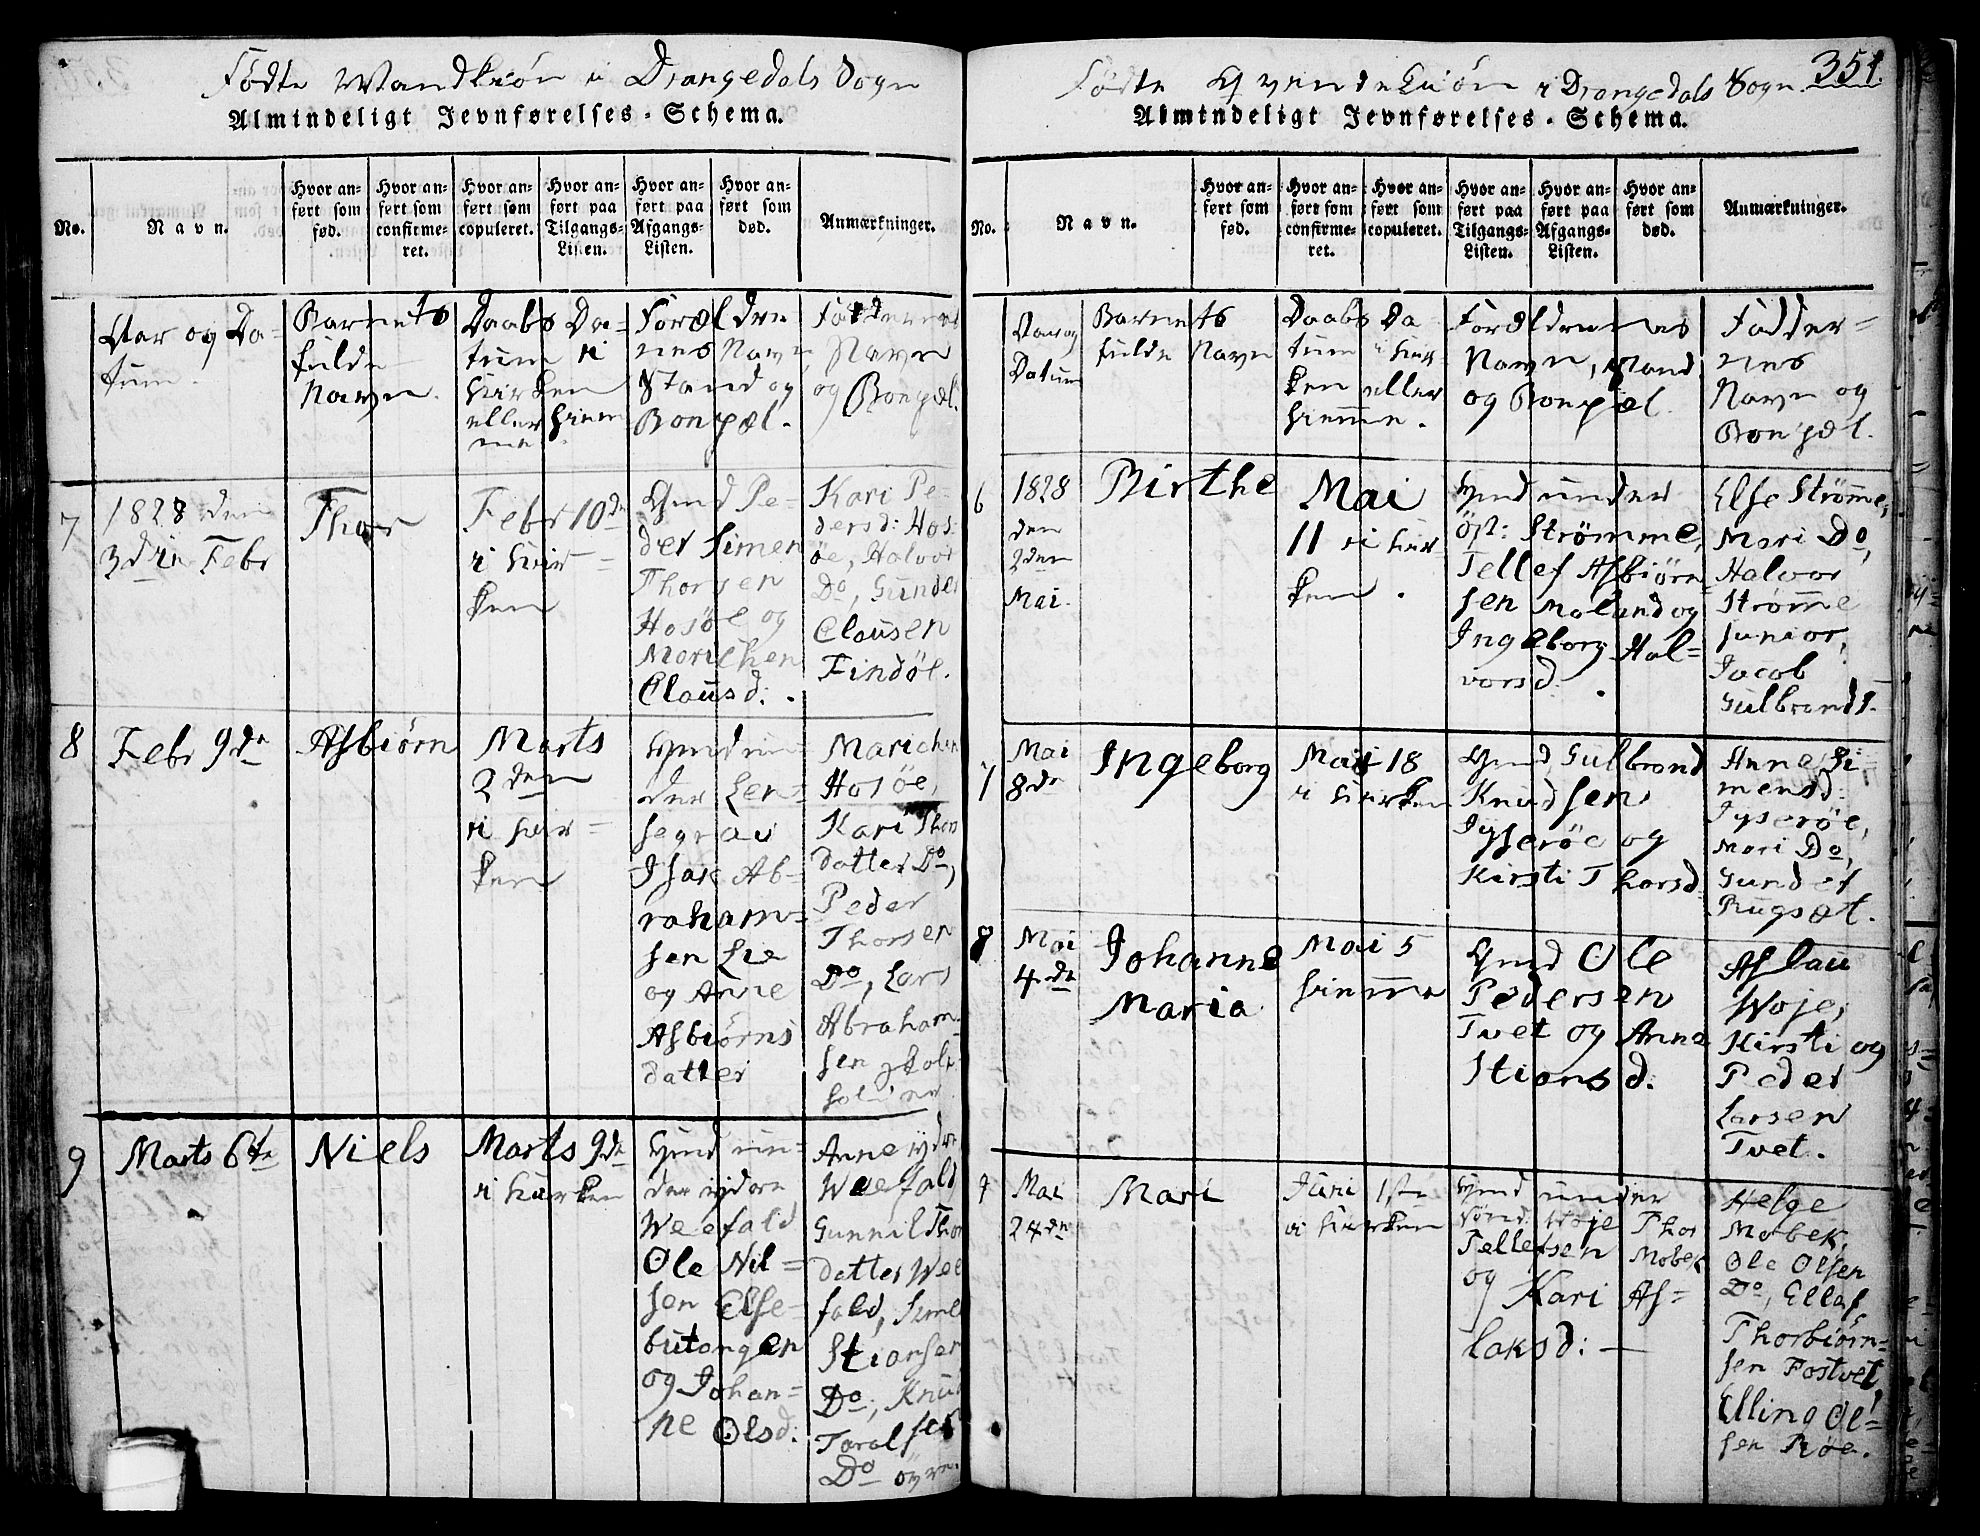 Fødte Mandkiøn i Drangedals Sogn
Almindeligt Jevnførelses-Schema.
No.
Navn.
Hvor an-
ført som
fød.
Hvor an-
ført som
confirme-
ret.
Hvor an-
ført som
copuleret.
Hvor an-
ført paa
Tilgangs-
Listen.
Hvor an-
ført paa
Afgangs-
Listen.
Hvor an-
ført som
død.
Anmærkninger.
Aar og Da-
tum.
Barnets
fulde
Navn.
Daabs Da-
tum i
Kirken
eller hiem
me.
Forældre
nes Navn
Stand og
Bopæl.
Faddernes
Navn
og Bopæl.
7
1828 den
3die Febr
Thor
Febr 10de
i Kir-
ken
Gmd Pe-
der Simen
Thorsen
Hosøe og
Marichen
Clausd:.
Kari Pe-
dersd: Hos-
øe, Halvor
Do, Gunder
Clausen
Findøl.
8
Febr 9de
Asbiørn
Marts
2den
i Kir-
ken
Gmd un-
der Len-
segrav
Isak Ab-
raham-
sen Lie
og Anne
Asbiørns
datter
Marichen
Hosøe,
Kari Thors
datter Do,
Peder
Thorsen
Do, Lars
Abraham-
sen
9
Marts 6te
Niels
Marts 9de
i Kirken
Gmd un-
der ydere
Weefald
Ole Nil-
sen Else-
butangen
og Johan-
ne Olsd.
Anne ydre
Weefald
Gunnil Thor
datter Wee
fald,
Stiansen
Do, Knud
Taralsen
Do øvre.
351.
Fødte Qvindekiøn i Drangedals Sogn.
Almindeligt Jevnførelses-Schema.
No.
Navn.
Hvor an-
ført som
fød.
Hvor an-
ført som
confirme-
ret.
Hvor an-
ført som
copuleret.
Hvor an-
ført paa
Tilgangs-
Listen.
Hvor an-
ført paa
Afgangs-
Listen.
Hvor an-
ført som
død.
Anmærkninger.
Aar og
Datum
Barnets
fulde Navn
Daabs Da-
tum i Kir-
ken eller
hiemme.
Forældrenes
Navn, Stand
og Bopæl.
Fadder-
nes
Navn og
Bopæl.
6
1828
den
2den
Mai.
Birthe
Mai
11 i Kir
ken.
Gmd under
öst: Strømme,
Tellef Asbiørn
sen Moland og
Ingeborg Hal-
vorsd.
Else Strømme,
Mari Do,
Halvor
Strømme
junior,
Jacob
Gulbrands.
7
Mai
8de
Ingeborg
Mai 18
i Kirken
Gmd Gulbrand
Knudsen
Jyserøe og
Kirsti Thorsd
Anne Si-
mensd:
Jyserøe,
Mari Do,
Gunder
Rugsæt.
8
Mai
4de
Johanne
Maria
Mai 5
hiemme
Gmd Ole
Pedersen
Tvet og Anne
Stiansd.
Aslau
Woje,
Kirsti og
Peder
Larsen
Tvet.
9
Mai
24de
Mari
Juni 1ste
i Kirken
Gmd under
Woje Thor
Tellefsen Mobek
og Kari As-
laksd: —
Helge
Mobek,
Ole Olsen
Do, Ellef
Thorbiørn-
sen Fostvet,
Elling Ol-
sen Røe.